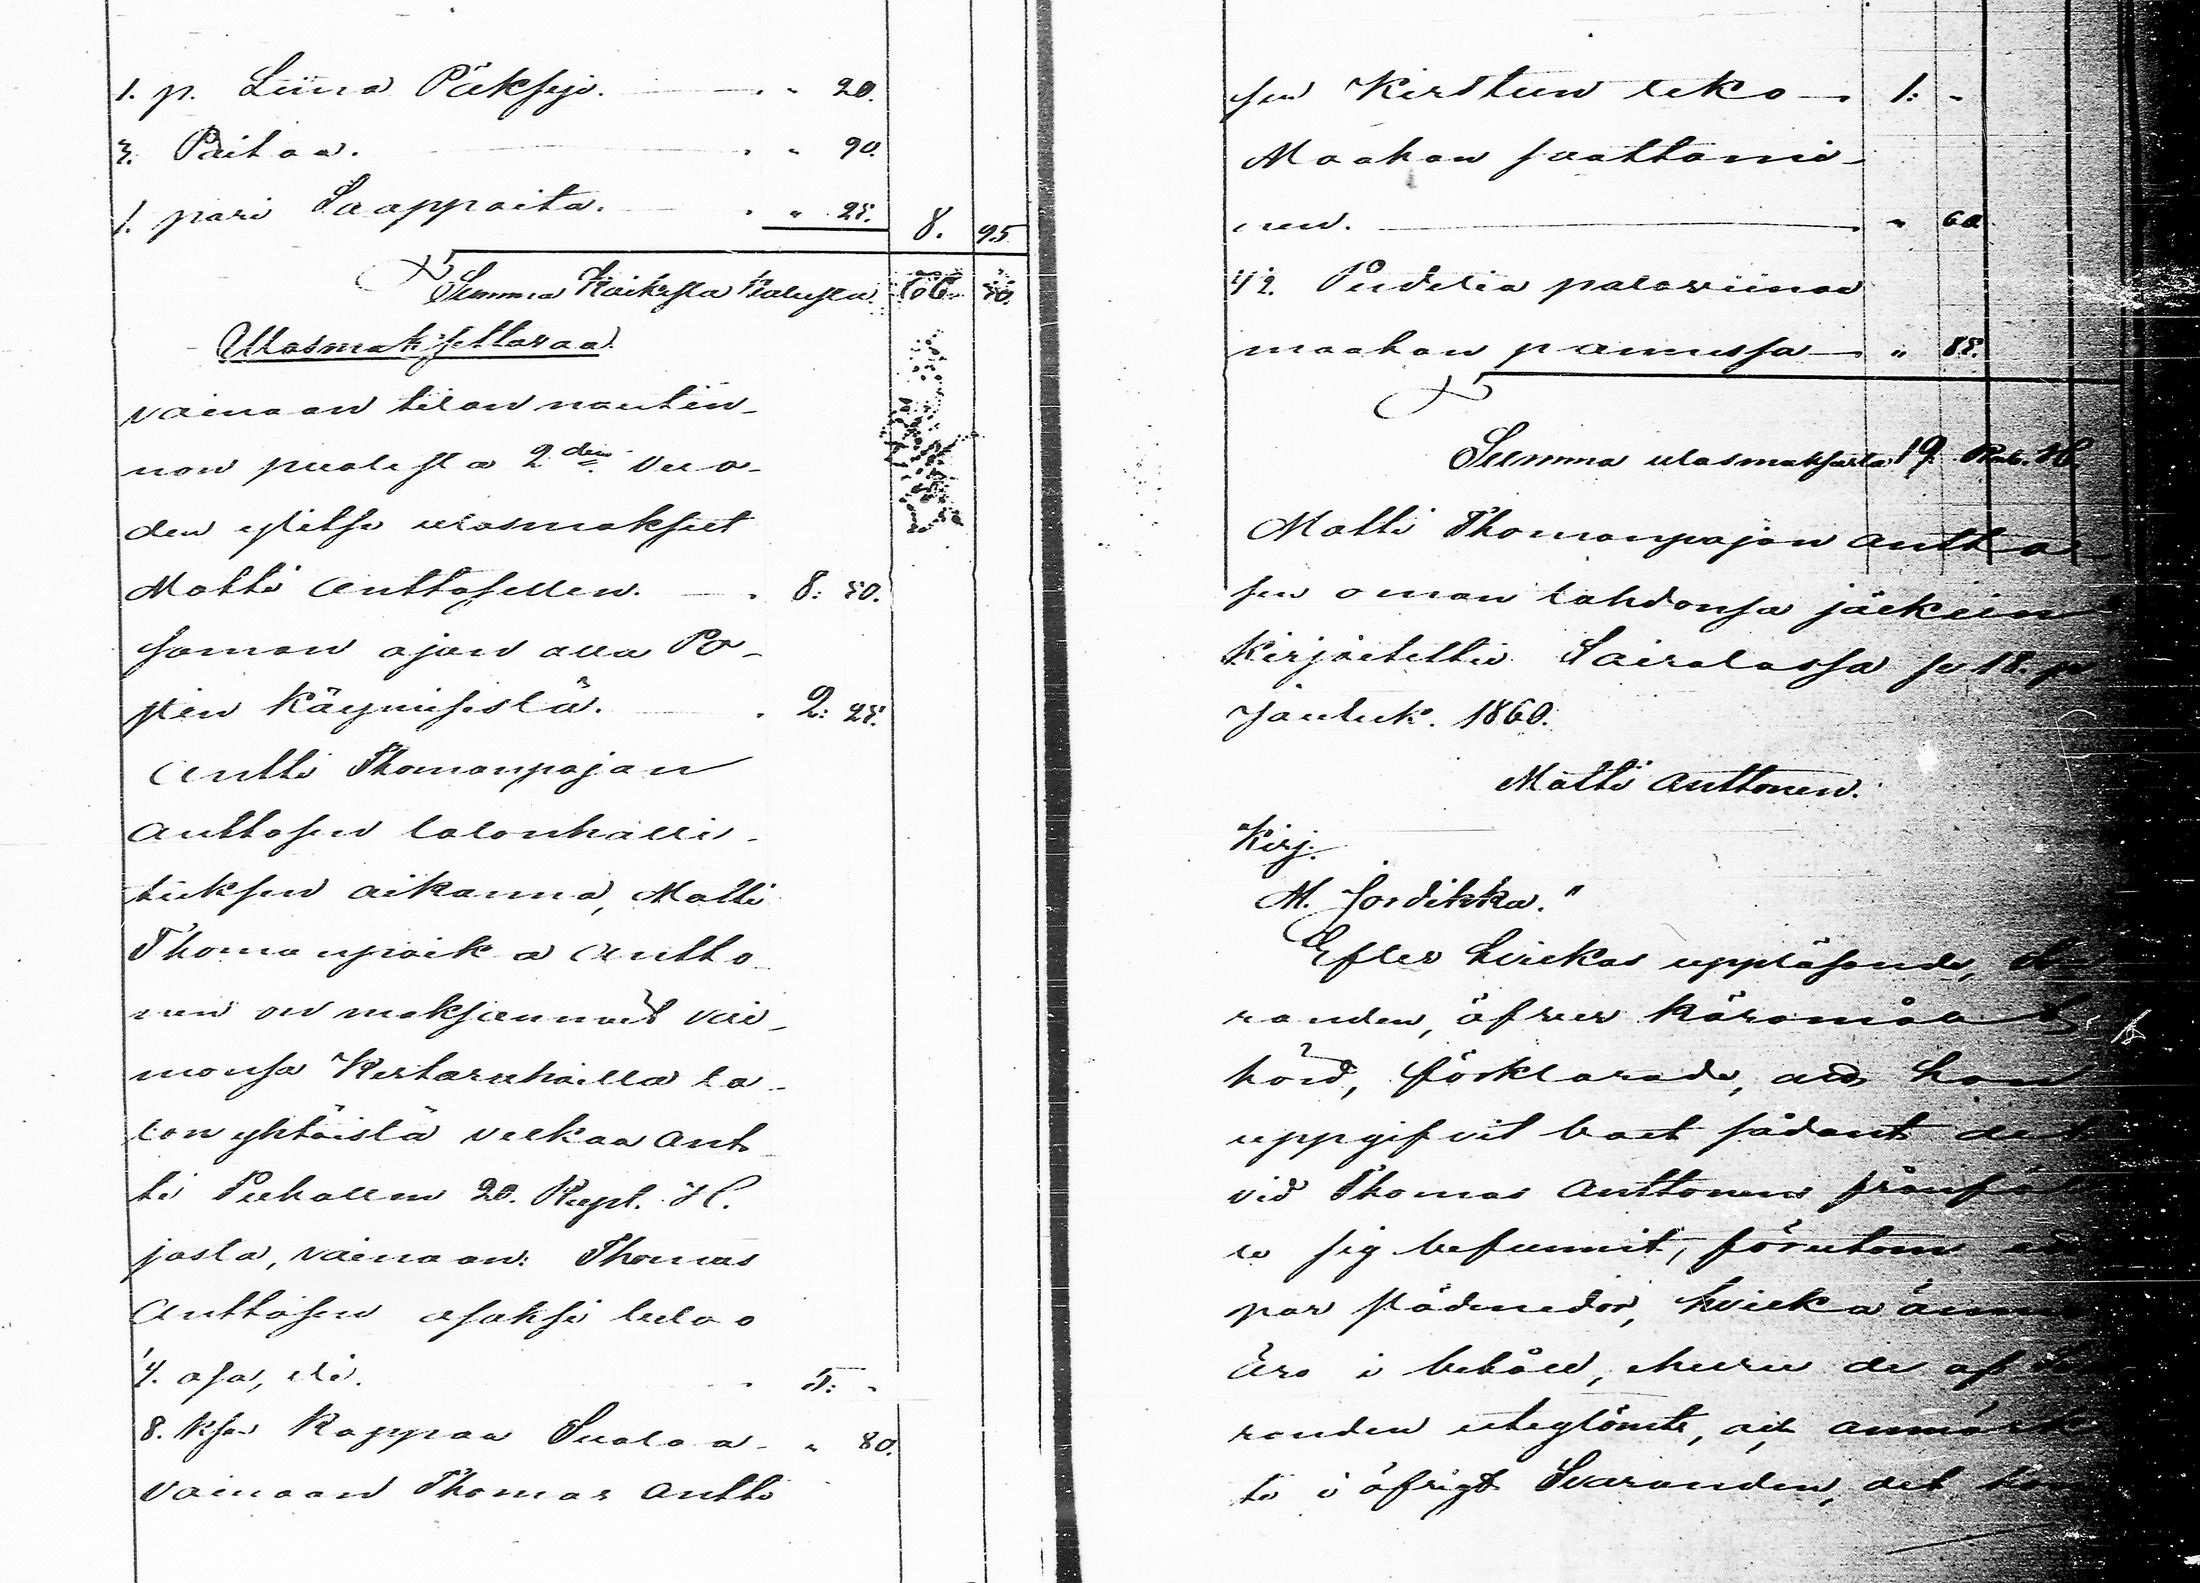 1. p. Liina Pöksyjä. " 20.
3. Paitaa. " 90.
1. pari Saappaita. " 25. 8. 95
Summa Kaikesta kalusta
Ulosmaksettavaa
vainaan tilan nautin-
non puolesta 2den vuo-
den ylitse ulosmaksut
Matti Anttoselle. 8: 50.
saman ajan alla Po-
stin käymisestä. 2: 25.
Antti Thomanpojan
Anttosen talonhalli-
tuksen aikanna, Matti
Thomanpoika Antto
nen on maksannut vai-
monsa kartanohalla ta-
lon yhtöistä velkaa Ant
ti Pukallen 20. Rupl. H.
josta, vainaan: Thomas
Anttosen osaksi tuloo
1/4. osa, eli. 5: "
8. ksa Kappaa Suoloa " 80.
vainaan Thomas Antto
sen Kirstun teko 1: "
Maahan saattami-
nen. " 60
1/2. Pudelia paloviinaa
maahan panussa " 85.
Summa ulosmaksusta 19. Rub. H.
Matti Thomanpojan Antto
sen oman tahdonsa jälkeen
kirjoitettin Sairalassa se 18. p
Jouluk. 1860.
Matti Anttonen.
Kirj.
M. Jordikka."
Efter hvilkas uppläsande,
randen, öfver käromålet
hörd, förklarade, att han
uppgifvit boet sådant det
vid Thomas Anttonens frånfäl
le sig befunnit, förutom ett
par städmedor, hvilka ännu
äro i behåll, ehuru de af
randen uteglömts, att anmärk
te i öfrigt Svaranden, det